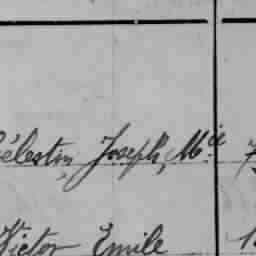 Célestin, Joseph, M.ie
Victor Emile